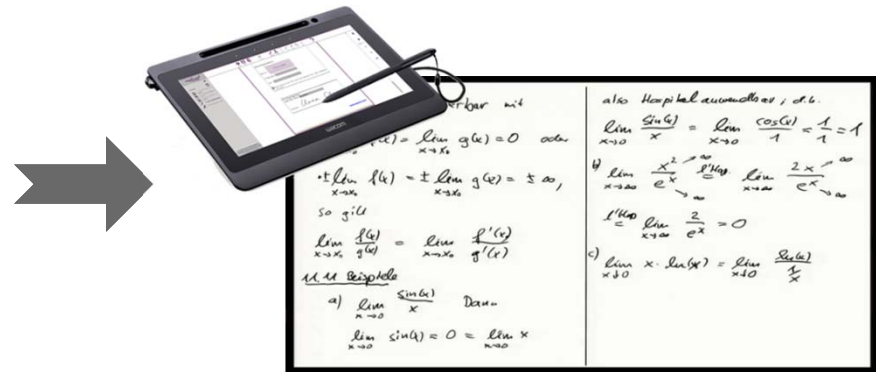 wacom
erbar mit
= lim x→x₀ g(x) = 0 oder
·± lim x→x₀ f(x) = ± lim x→x₀ g(x) = ± ∞,
so gilt
lim x→x₀ f(x)/g(x) = lim x→x₀ f'(x)/g'(x)
11.11 Beispiele
a) lim x→0 sin(x)/x Dann
lim x→0 sin(x) = 0 = lim x→0 x
also Hospital anwendbar, d.h.
lim x→0 sin(x)/x = lim x→0 cos(x)/1 = 1/1 = 1
b) lim x→∞ x² →∞ / eˣ →∞ l'Hosp. = lim x→∞ 2x →∞ / eˣ →∞
l'Hosp = lim x→∞ 2/eˣ = 0
c) lim x↓0 x · ln(x) = lim x↓0 ln(x) / 1/x